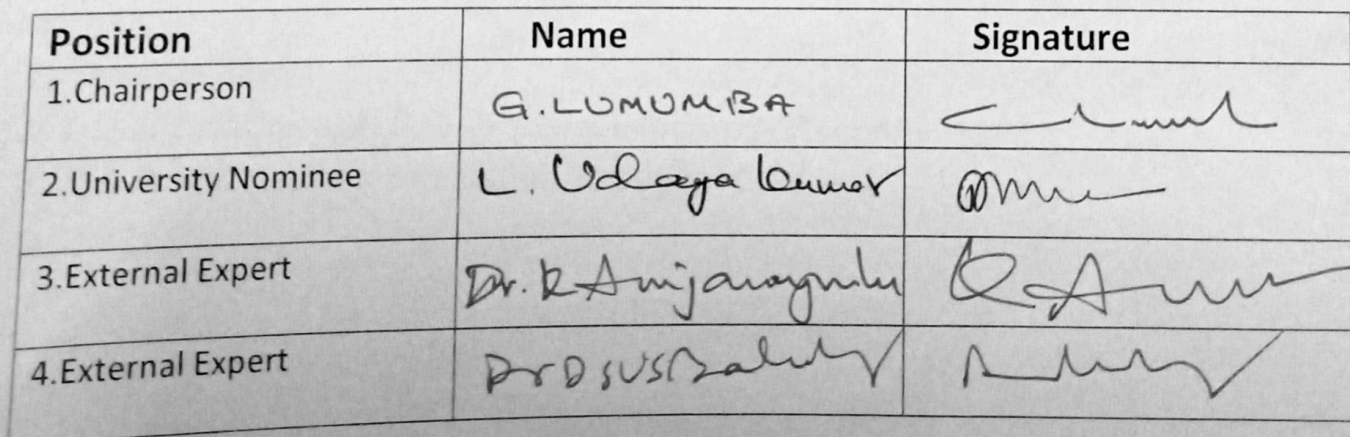 Position Name Signature
1.Chairperson G.LUMUMBA
2.University Nominee L. Udaya Kumar
3.External Expert Dr. R
4.External Expert Dr D SUS